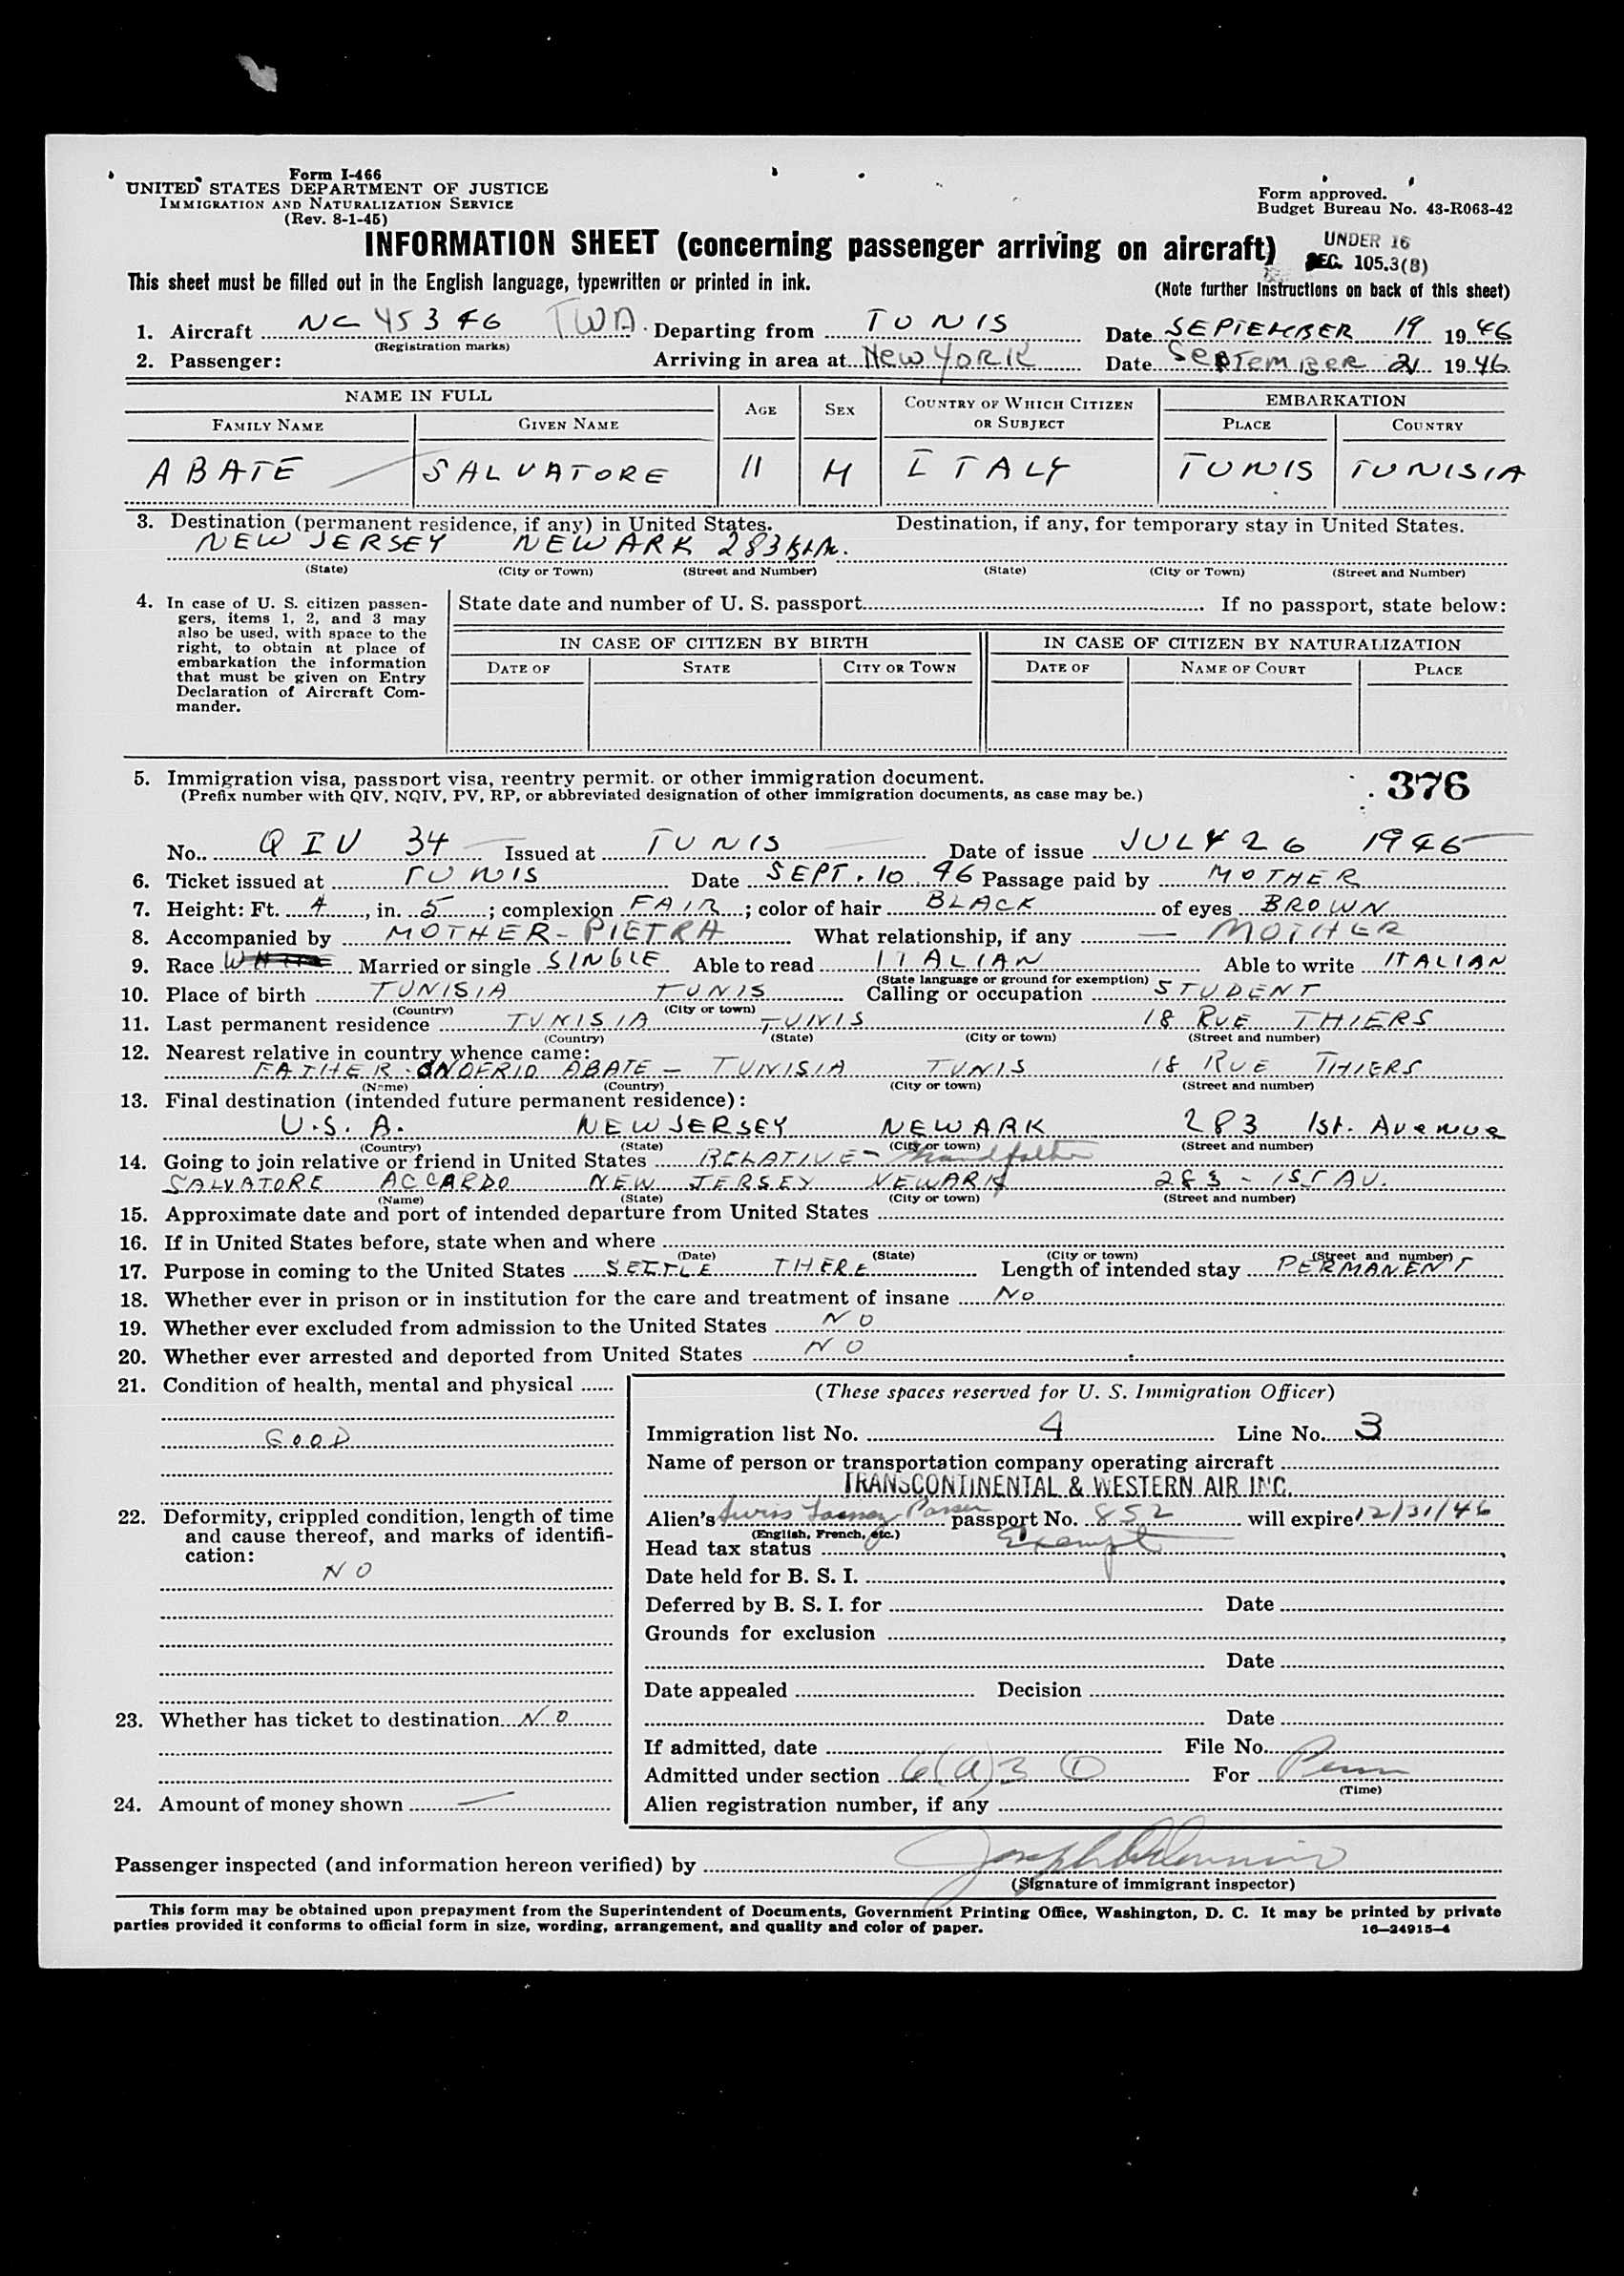 Form I-466
UNITED STATES DEPARTMENT OF JUSTICE
IMMIGRATION AND NATURALIZATION SERVICE
(Rev. 8-1-45)
Form approved.
Budget Bureau No. 43-R063-42
INFORMATION SHEET (concerning passenger arriving on aircraft)
UNDER 16
SEC. 105.3(B)
This sheet must be filled out in the English language, typewritten or printed in ink.
(Note further instructions on back of this sheet)
1. Aircraft NC 45346 TWA. Departing from TUNIS Date SEPTEMBER 19 1946
(Registration marks)
2. Passenger: Arriving in area at New YORK Date September 21 1946
NAME IN FULL AGE SEX COUNTRY OF WHICH CITIZEN OR SUBJECT EMBARKATION
FAMILY NAME GIVEN NAME PLACE COUNTRY
ABATE SALVATORE 11 M ITALY TUNIS TUNISIA
3. Destination (permanent residence, if any) in United States. Destination, if any, for temporary stay in United States.
NEW JERSEY NEWARK 283
(State) (City or Town) (Street and Number) (State) (City or Town) (Street and Number)
4. In case of U. S. citizen passengers, items 1, 2, and 3 may also be used, with space to the right, to obtain at place of embarkation the information that must be given on Entry Declaration of Aircraft Commander.
State date and number of U. S. passport If no passport, state below:
IN CASE OF CITIZEN BY BIRTH IN CASE OF CITIZEN BY NATURALIZATION
DATE OF STATE CITY OR TOWN DATE OF NAME OF COURT PLACE
5. Immigration visa, passport visa, reentry permit. or other immigration document.
(Prefix number with QIV, NQIV, PV, RP, or abbreviated designation of other immigration documents, as case may be.)
376
No. QIV 34 Issued at TUNIS Date of issue JULY 26 1946
6. Ticket issued at TUNIS Date SEPT. 10. 46 Passage paid by MOTHER
7. Height: Ft. 4, in. 5; complexion FAIR; color of hair BLACK of eyes BROWN
8. Accompanied by MOTHER - PIETRA What relationship, if any MOTHER
9. Race WHITE Married or single SINGLE Able to read ITALIAN Able to write ITALIAN
(State language or ground for exemption)
10. Place of birth TUNISIA TUNIS Calling or occupation STUDENT
(Country) (City or town)
11. Last permanent residence TUNISIA TUNIS 18 RUE THIERS
(Country) (State) (City or town) (Street and number)
12. Nearest relative in country whence came:
FATHER. ONOFRIO ABATE - TUNISIA TUNIS 18 RUE THIERS
(Name) (Country) (City or town) (Street and number)
13. Final destination (intended future permanent residence):
U.S.A. NEW JERSEY NEWARK 283 1st. Avenue
(Country) (State) (City or town) (Street and number)
14. Going to join relative or friend in United States RELATIVE - Grandfather
SALVATORE ACCARDO NEW JERSEY NEWARK 283 - 1ST AV.
(Name) (State) (City or town) (Street and number)
15. Approximate date and port of intended departure from United States
16. If in United States before, state when and where
(Date) (State) (City or town) (Street and number)
17. Purpose in coming to the United States SETTLE THERE Length of intended stay PERMANENT
18. Whether ever in prison or in institution for the care and treatment of insane No
19. Whether ever excluded from admission to the United States NO
20. Whether ever arrested and deported from United States NO
21. Condition of health, mental and physical
GOOD
22. Deformity, crippled condition, length of time and cause thereof, and marks of identification:
NO
23. Whether has ticket to destination NO
24. Amount of money shown —
(These spaces reserved for U. S. Immigration Officer)
Immigration list No. 4 Line No. 3
Name of person or transportation company operating aircraft
TRANSCONTINENTAL & WESTERN AIR INC.
Alien's passport No. 852 will expire 12/31/46
(English, French, etc.)
Head tax status Exempt
Date held for B. S. I.
Deferred by B. S. I. for Date
Grounds for exclusion
Date
Date appealed Decision
Date
If admitted, date File No.
Admitted under section 6(a)3 (1) For Perm
(Time)
Alien registration number, if any
Passenger inspected (and information hereon verified) by
(Signature of immigrant inspector)
This form may be obtained upon prepayment from the Superintendent of Documents, Government Printing Office, Washington, D. C. It may be printed by private
parties provided it conforms to official form in size, wording, arrangement, and quality and color of paper. 16—24915-4